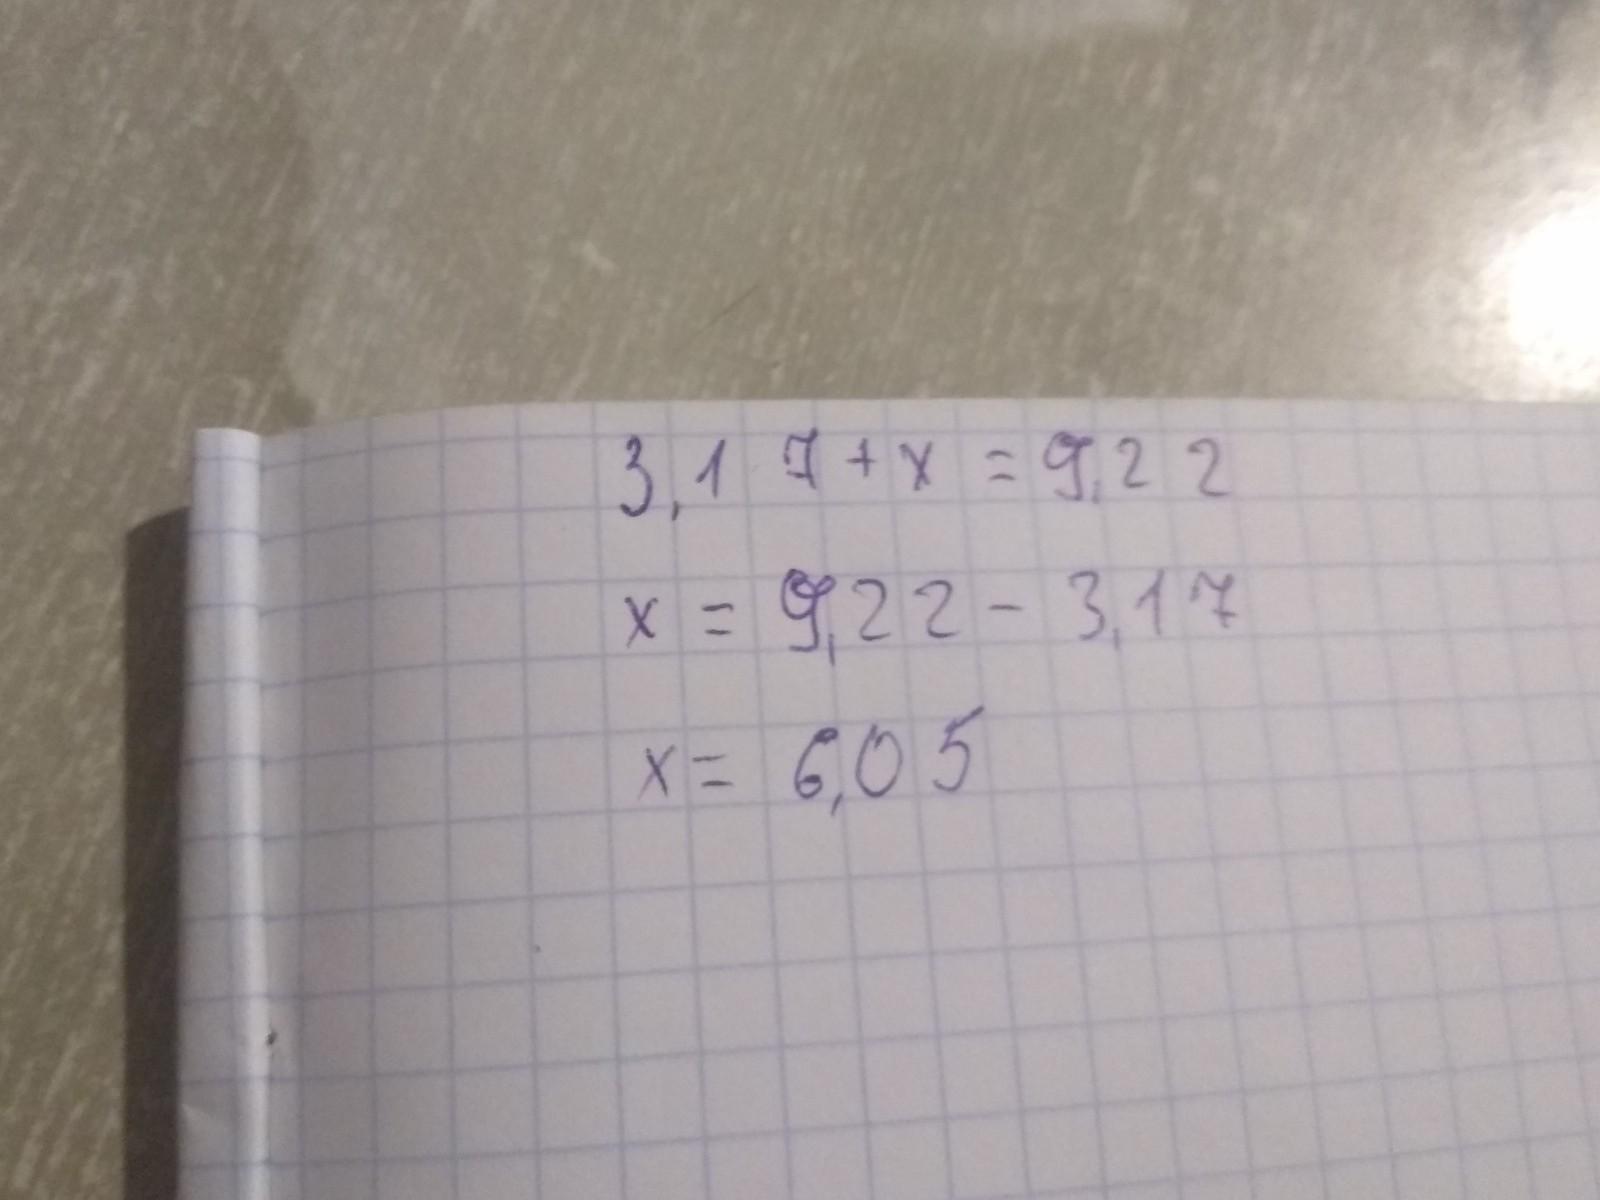 3,17 + x = 9,22
x = 9,22 - 3,17
x = 6,05